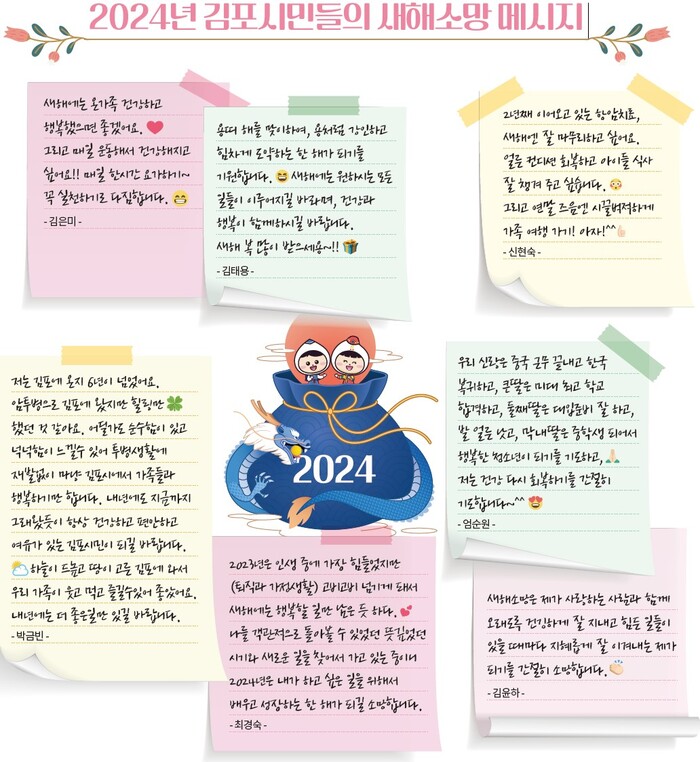 2024년 김포시민들의 새해소망 메시지
새해에는 온가족 건강하고
행복했으면 좋겠어요.
그리고 매일 운동해서 건강해지고
싶어요!! 매일 한시간 요가하기~
꼭 실천하기로 다짐합니다.
- 김은미 -
용띠 해를 맞이하여, 용처럼 강인하고
힘차게 도약하는 한 해가 되기를
기원합니다. 새해에는 원하시는 모든
일들이 이루어지길 바라며, 건강과
행복이 함께하시길 바랍니다.
새해 복 많이 받으세용~!!
- 김태용 -
2년째 이어오고 있는 항암치료,
새해엔 잘 마무리하고 싶어요.
얼른 컨디션 회복하고 아이들 식사
잘 챙겨 주고 싶습니다.
그리고 연말 즈음엔 시끌벅적하게
가족 여행 가기! 아자!^^
- 신현숙 -
저는 김포에 온지 6년이 넘었어요.
암투병으로 김포에 왔지만 힐링만
했던 것 같아요. 어딜가도 순수함이 있고
넉넉함이 느낄수 있어 투병생활에
재발없이 마냥 김포시에서 가족들과
행복하기만 합니다. 내년에도 지금까지
그래왔듯이 항상 건강하고 편안하고
여유가 있는 김포시민이 되길 바랍니다.
하늘이 드높고 땅이 고른 김포에 와서
우리 가족이 웃고 먹고 즐길수있어 좋았어요.
내년에는 더 좋은일만 있길 바랍니다.
- 박금빈 -
2024
우리 신랑은 중국 근무 끝내고 한국
복귀하고, 큰딸은 미대 최고 학교
합격하고, 둘째딸은 대입준비 잘 하고,
발 얼른 낫고, 막내딸은 중학생 되어서
행복한 청소년이 되기를 기도하고,
저는 건강 다시 회복하기를 간절히
기도합니다~^^
- 엄순원 -
2023년은 인생 중에 가장 힘들었지만
(퇴직과 가정생활) 고비고비 넘기게 돼서
새해에는 행복할 일만 남은 듯 하다.
나를 객관적으로 돌아볼 수 있었던 뜻깊었던
시기와 새로운 일을 찾아서 가고 있는 중이니
2024년은 내가 하고 싶은 일을 위해서
배우고 성장하는 한 해가 되길 소망합니다.
- 최경숙 -
새해소망은 제가 사랑하는 사람과 함께
오래도록 건강하게 잘 지내고 힘든 일들이
있을 때마다 지혜롭게 잘 이겨내는 제가
되기를 간절히 소망합니다.
- 김윤하 -